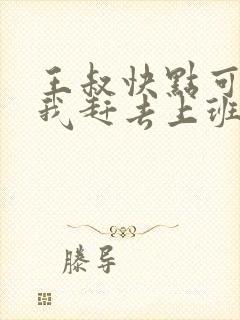 王叔快點可
我赶去上班
滕导